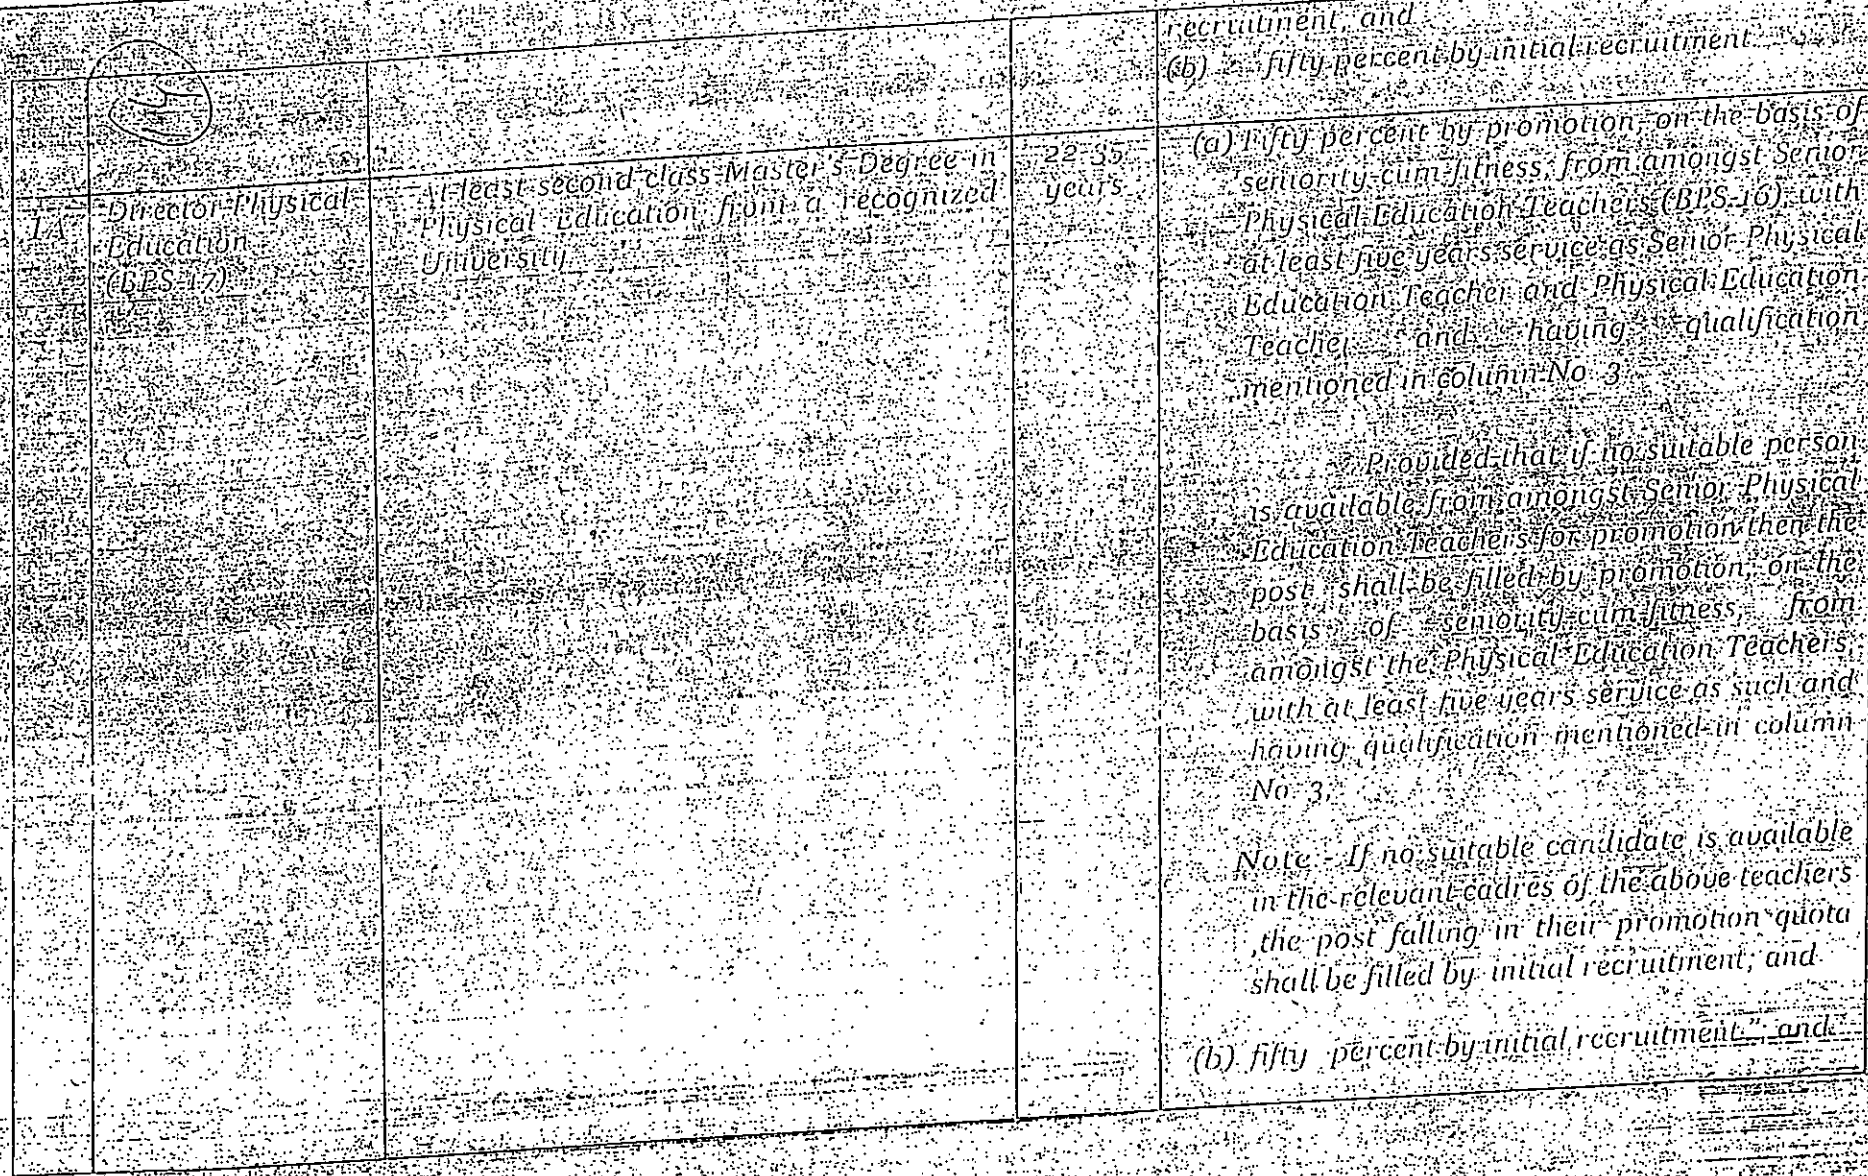 recruitment, and
(b) fifty percent by initial recruitment
Director Physical
Education
(BPS-17)
At least second class Master's Degree in
Physical Education from a recognized
University
22-35
years
(a) Fifty percent by promotion, on the basis of
seniority-cum-fitness, from amongst Senior
Physical Education Teachers (BPS-16), with
at least five years service as Senior Physical
Education Teacher and Physical Education
Teacher and having qualification
mentioned in column No 3
Provided that if no suitable person
is available from amongst Senior Physical
Education Teachers for promotion then the
post shall be filled by promotion, on the
basis of seniority-cum-fitness, from
amongst the Physical Education Teachers,
with at least five years service as such and
having qualification mentioned in column
No 3.
Note - If no suitable candidate is available
in the relevant cadres of the above teachers
the post falling in their promotion quota
shall be filled by initial recruitment; and
(b) fifty percent by initial recruitment.", and